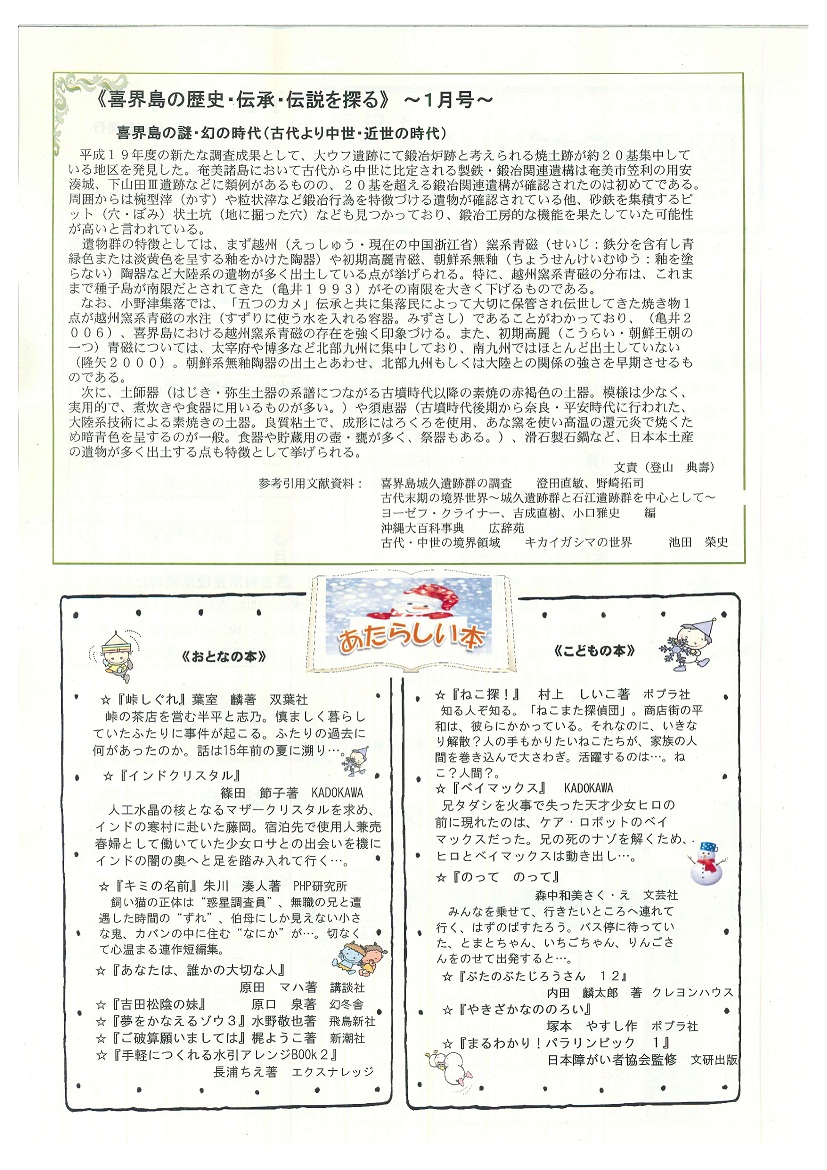 《喜界島の歴史・伝承・伝説を探る》 ～1月号～
喜界島の謎・幻の時代（古代より中世・近世の時代）
平成１９年度の新たな調査成果として、大ウフ遺跡にて鍛冶炉跡と考えられる焼土跡が約２０基集中して
いる地区を発見した。奄美諸島において古代から中世に比定される製鉄・鍛冶関連遺構は奄美市笠利の用安
湊城、下山田Ⅲ遺跡などに類例があるものの、２０基を超える鍛冶関連遺構が確認されたのは初めてである。
周囲からは椀型滓（かす）や粒状滓など鍛冶行為を特徴づける遺物が確認されている他、砂鉄を集積するピ
ット（穴・ぼみ）状土坑（地に掘った穴）なども見つかっており、鍛冶工房的な機能を果たしていた可能性
が高いと言われている。
遺物群の特徴としては、まず越州（えっしゅう・現在の中国浙江省）窯系青磁（せいじ：鉄分を含有し青
緑色または淡黄色を呈する釉をかけた陶器）や初期高麗青磁、朝鮮系無釉（ちょうせんけいむゆう：釉を塗
らない）陶器など大陸系の遺物が多く出土している点が挙げられる。特に、越州窯系青磁の分布は、これま
まで種子島が南限だとされてきた（亀井１９９３）がその南限を大きく下げるものである。
なお、小野津集落では、「五つのカメ」伝承と共に集落民によって大切に保管され伝世してきた焼き物１
点が越州窯系青磁の水注（すずりに使う水を入れる容器。みずさし）であることがわかっており、（亀井２
００６）、喜界島における越州窯系青磁の存在を強く印象づける。また、初期高麗（こうらい・朝鮮王朝の
一つ）青磁については、太宰府や博多など北部九州に集中しており、南九州ではほとんど出土していない
（隆矢２０００）。朝鮮系無釉陶器の出土とあわせ、北部九州もしくは大陸との関係の強さを早期させるも
のである。
次に、土師器（はじき・弥生土器の系譜につながる古墳時代以降の素焼の赤褐色の土器。模様は少なく、
実用的で、煮炊きや食器に用いるものが多い。）や須恵器（古墳時代後期から奈良・平安時代に行われた、
大陸系技術による素焼きの土器。良質粘土で、成形にはろくろを使用、あな窯を使い高温の還元炎で焼くた
め暗青色を呈するのが一般。食器や貯蔵用の壺・甕が多く、祭器もある。）、滑石製石鍋など、日本本土産
の遺物が多く出土する点も特徴として挙げられる。
文責（登山 典壽）
参考引用文献資料： 喜界島城久遺跡群の調査 澄田直敏、野﨑拓司
古代末期の境界世界～城久遺跡群と石江遺跡群を中心として～
ヨーゼフ・クライナー、吉成直樹、小口雅史 編
沖縄大百科事典 広辞苑
古代・中世の境界領域 キカイガシマの世界 池田 榮史
あたらしい本
《おとなの本》
☆『峠しぐれ』葉室 麟著 双葉社
峠の茶店を営む半平と志乃。慎ましく暮らし
ていたふたりに事件が起こる。ふたりの過去に
何があったのか。話は15年前の夏に溯り…。
☆『インドクリスタル』
篠田 節子著 KADOKAWA
人工水晶の核となるマザークリスタルを求め、
インドの寒村に赴いた藤岡。宿泊先で使用人兼売
春婦として働いていた少女ロサとの出会いを機に
インドの闇の奥へと足を踏み入れて行く…。
☆『キミの名前』朱川 湊人著 PHP研究所
飼い猫の正体は“惑星調査員”、無職の兄と遭
遇した時間の“ずれ”、伯母にしか見えない小さ
な鬼、カバンの中に住む“なにか”が…。切なく
て心温まる連作短編集。
☆『あなたは、誰かの大切な人』
原田 マハ著 講談社
☆『吉田松陰の妹』 原口 泉著 幻冬舎
☆『夢をかなえるゾウ３』水野敬也著 飛鳥新社
☆『ご破算願いましては』梶ようこ著 新潮社
☆『手軽につくれる水引アレンジBOOk２』
長浦ちえ著 エクスナレッジ
《こどもの本》
☆『ねこ探！』 村上 しいこ著 ポプラ社
知る人ぞ知る。「ねこまた探偵団」。商店街の平
和は、彼らにかかっている。それなのに、いきな
り解散？人の手もかりたいねこたちが、家族の人
間を巻き込んで大さわぎ。活躍するのは…。ね
こ？人間？。
☆『ベイマックス』 KADOKAWA
兄タダシを火事で失った天才少女ヒロの
前に現れたのは、ケア・ロボットのベイ
マックスだった。兄の死のナゾを解くため、
ヒロとベイマックスは動き出し…。
☆『のって のって』
森中和美さく・え 文芸社
みんなを乗せて、行きたいところへ連れて
行く、はずのばすたろう。バス停に待ってい
た、とまとちゃん、いちごちゃん、りんごさ
んをのせて出発すると…。
☆『ぶたのぶたじろうさん １２』
内田 麟太郎 著 クレヨンハウス
☆『やきざかなののろい』
塚本 やすし作 ポプラ社
☆『まるわかり！パラリンピック １』
日本障がい者協会監修 文研出版